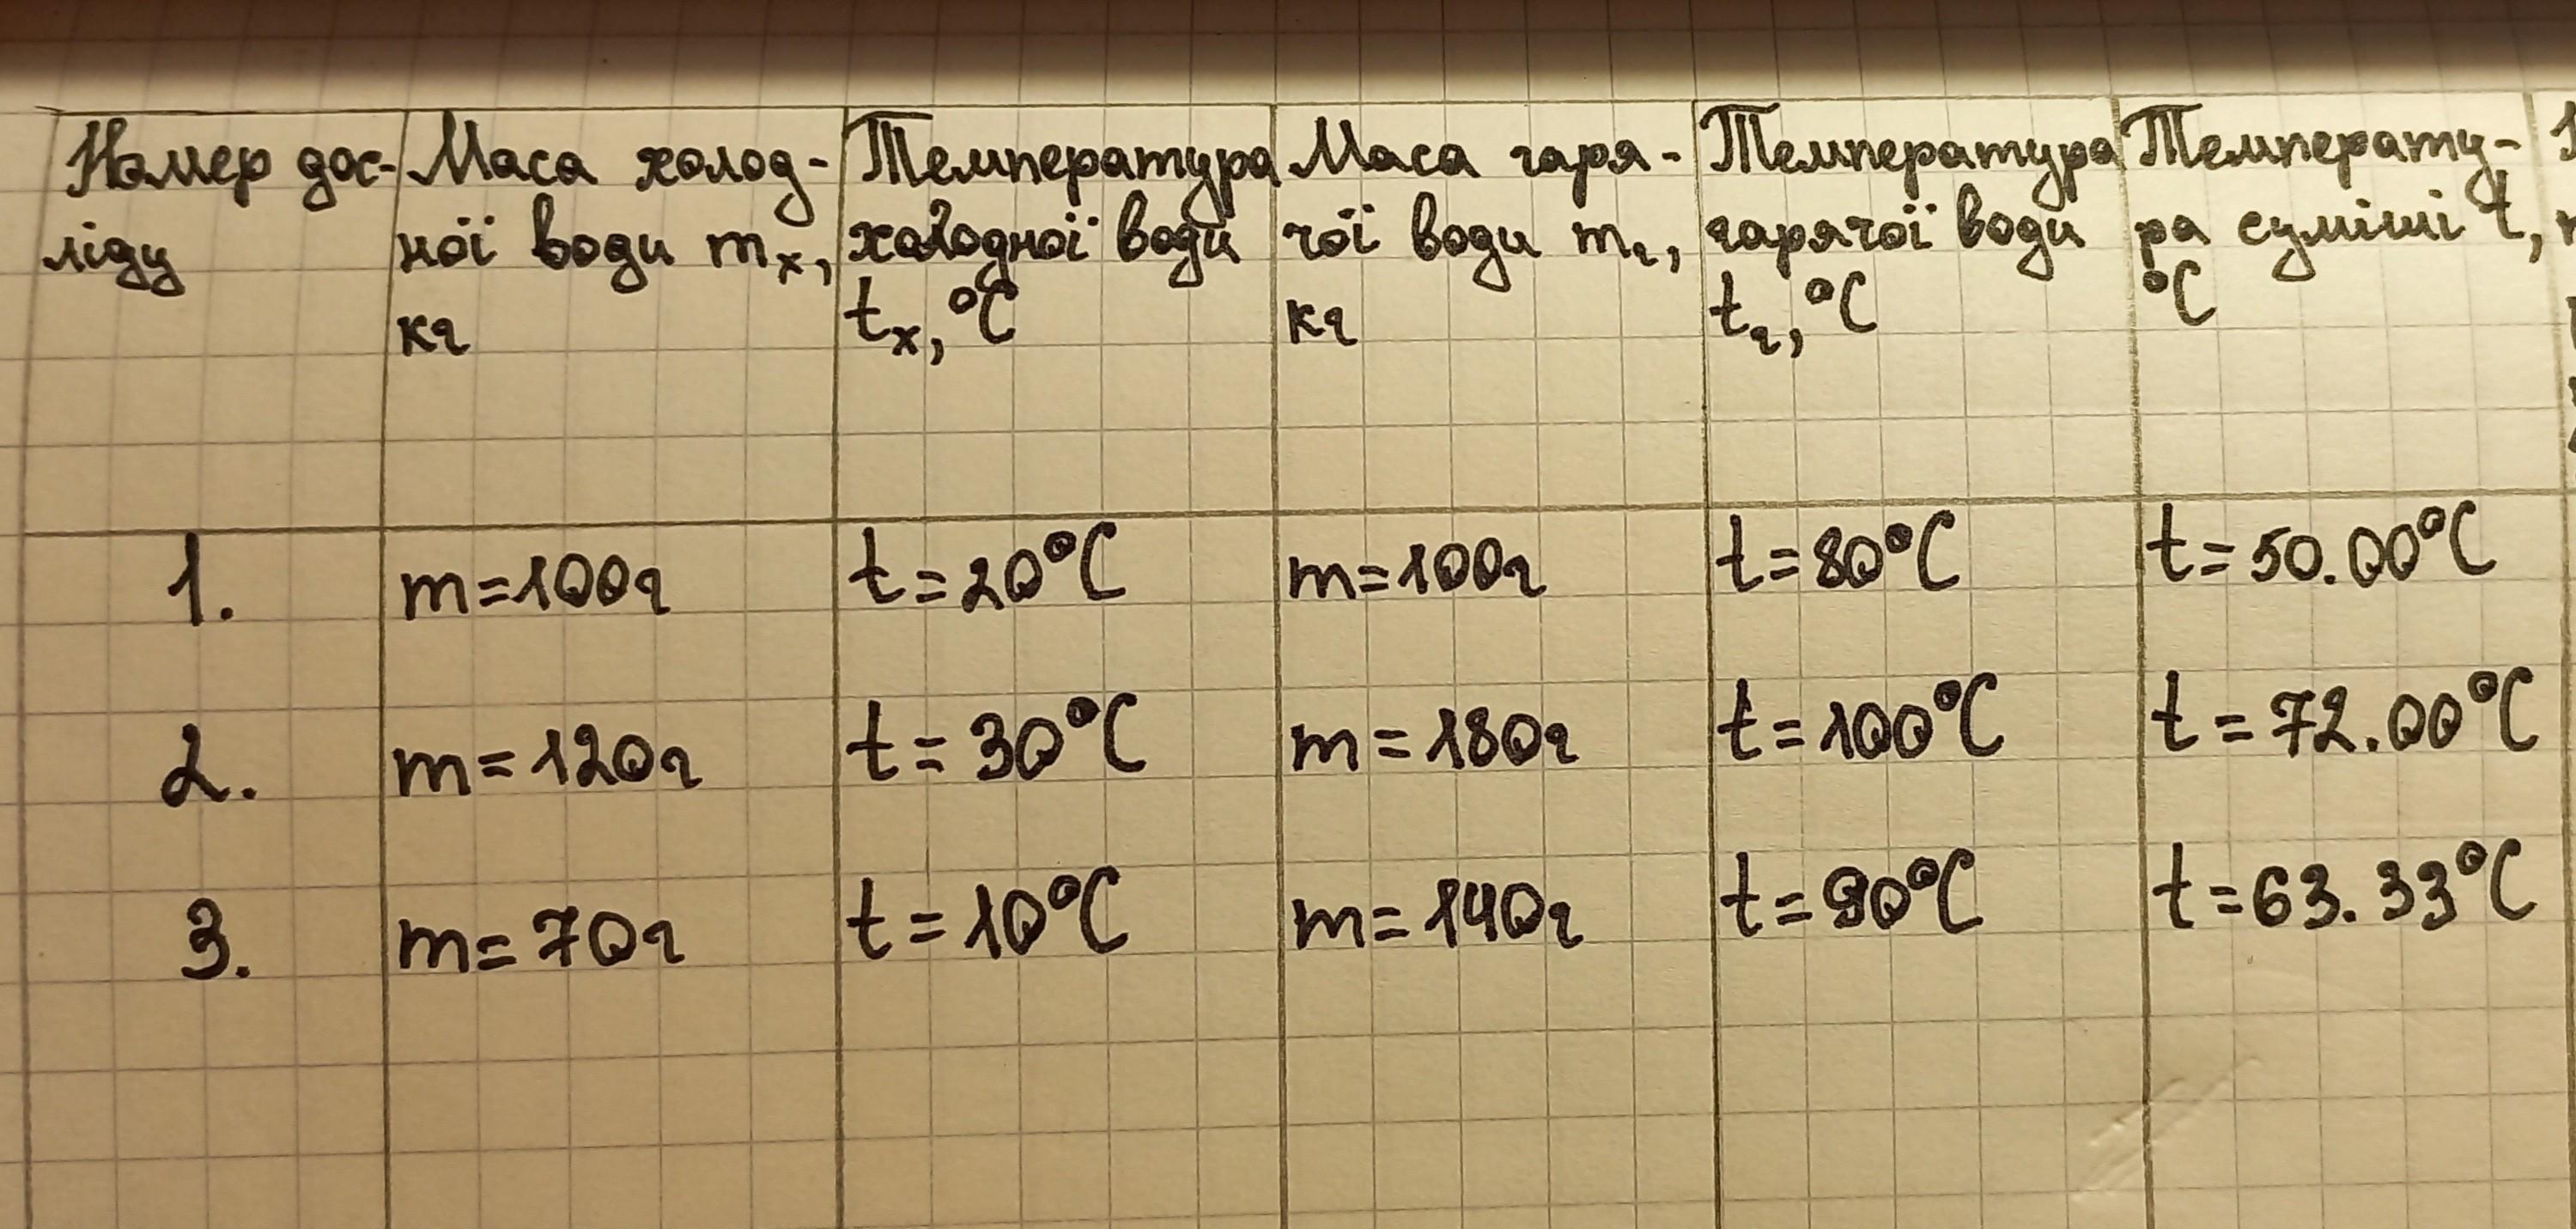 Номер дос-
ліду
Маса холод-
ної води mх,
кг
Температура
холодної води
tх, °C
Маса гаря-
чої води mг,
кг
Температура
гарячої води
tг, °C
Температу-
ра суміші t,
°C
1.
m=100г
t=20°C
m=100г
t=80°C
t=50.00°C
2.
m=120г
t=30°C
m=180г
t=100°C
t=72.00°C
3.
m=70г
t=10°C
m=140г
t=90°C
t=63.33°C